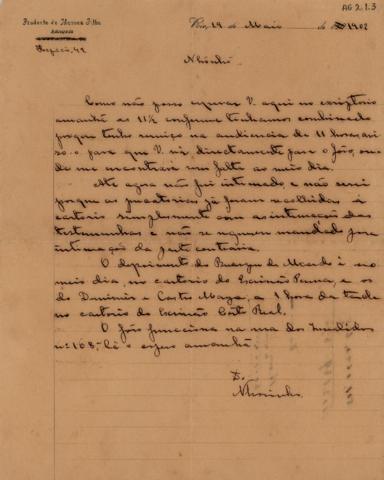 AG 2.1.3
Prudente de Moraes Filho
Advogado
Rosario, 42
Rio, 19 de Maio de 1902
Nhônhô
Como não posso esperar V. aqui no escriptorio
amanhã as 11½ conforme tinhamos combinado
porque tenho serviço na audiencia de 11 horas, avi-
so-o para que V. vá directamente para o Jôio, on-
de me encontrará sem falta ao meio dia.
Até agora não fui intimado, e não sei
porque as precatorias já foram recolhidas a
cartorio simplesmente com as intimações das
testemunhas e não se requereu mandado para
intimação da parte contraria.
O depoimento do de Macedo é ao
meio dia, no cartorio do Escrivão Penna, e os
do e Castro Maya, a 1 hora da tarde
no cartorio do Escrivão
O funcciona na rua dos Invalidos
nº 108; lá o espero amanhã.